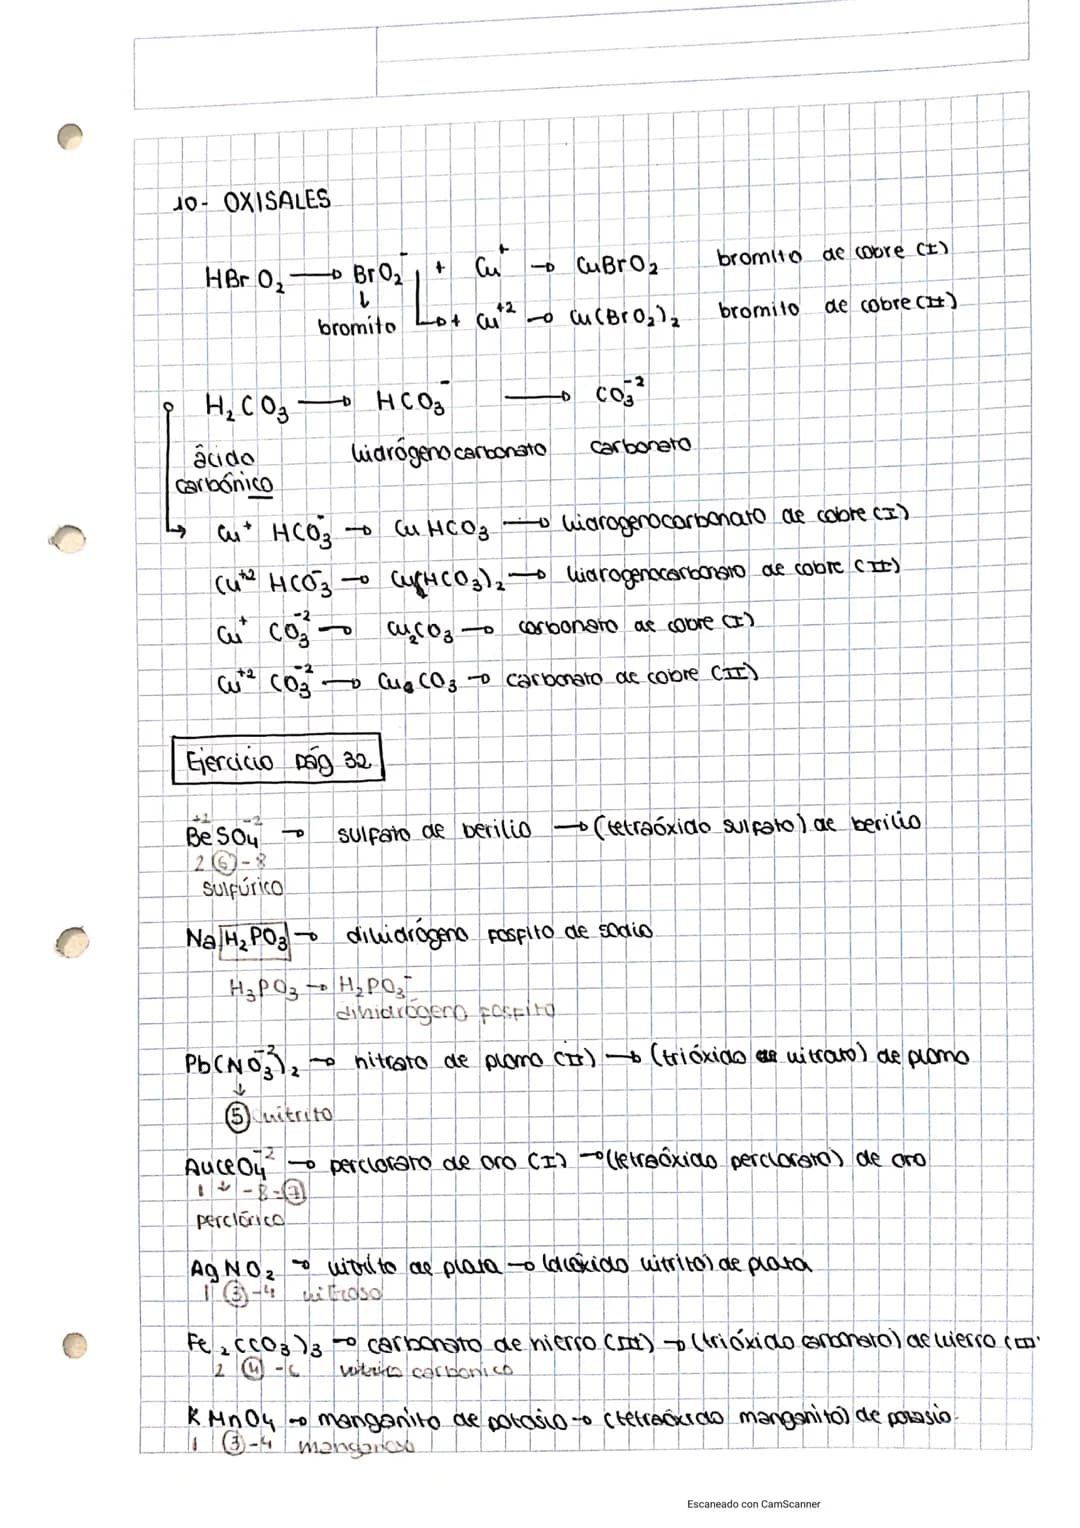 10- OXISALES
HBrO₂ → BrO₂⁻ + Cu⁺ → CuBrO₂ bromito de cobre (I)
↓
bromito → + Cu⁺² → Cu(BrO₂)₂ bromito de cobre (II)
H₂CO₃ → HCO₃⁻ → CO₃⁻²
âcido hidrógenocarbonato carbonato
carbónico
Cu⁺ HCO₃⁻ → CuHCO₃ → hidrogenocarbonato de cobre (I)
Cu⁺² HCO₃⁻ → Cu(HCO₃)₂ → hidrogenocarbonato de cobre (II)
Cu⁺ CO₃⁻² → Cu₂CO₃ → carbonato de cobre (I)
Cu⁺² CO₃⁻² → Cu CO₃ → carbonato de cobre (II)
Ejercicio pág 32
BeSO₄⁻² → sulfato de berilio → (tetraóxido sulfato) de berilio
2 6 -8
sulfúrico
NaH₂PO₃ → dihidrógeno fosfito de sodio
H₃PO₃ → H₂PO₃⁻
dihidrógeno fosfito
Pb(NO₃⁻²)₂ → nitrato de plomo (II) → (trióxido nitrato) de plomo
↓
5 nitrito
AuClO₄⁻² → perclorato de oro (I) → (tetraóxido perclorato) de oro
1 ↓ -8=7
perclórico
AgNO₂ → nitrito de plata → (dióxido nitrito) de plata
1 3 -4 nitroso
Fe₂(CO₃)₃ → carbonato de hierro (III) → (trióxido carbonato) de hierro (III)
2 4 -6 carbonico
KMnO₄ → manganito de potasio → (tetraóxido manganito) de potasio.
1 3 -4 manganoso
Escaneado con CamScanner